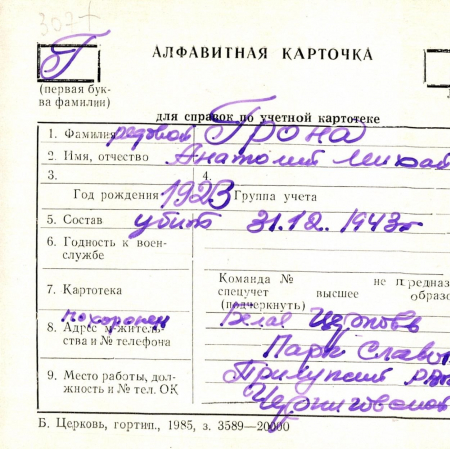 307
Г
АЛФАВИТНАЯ КАРТОЧКА
(первая бук-
ва фамилии)
для справок по учетной картотеке
1. Фамилия рядовой Грона
2. Имя, отчество Анатолий Михай
3.
4.
Год рождения 1923 Группа учета
5. Состав убит 31.12. 1943г
6. Годность к воен-
службе
7. Картотека
Команда № не предназ
спецучет высшее образо
(подчеркнуть)
похоронен Белая Церковь
8. Адрес м-житель-
ства и № телефона
Парк Славы
9. Место работы, дол-
жность и № тел. ОК
Прилукский
Б. Церковь, гортип., 1985, з. 3589—20000